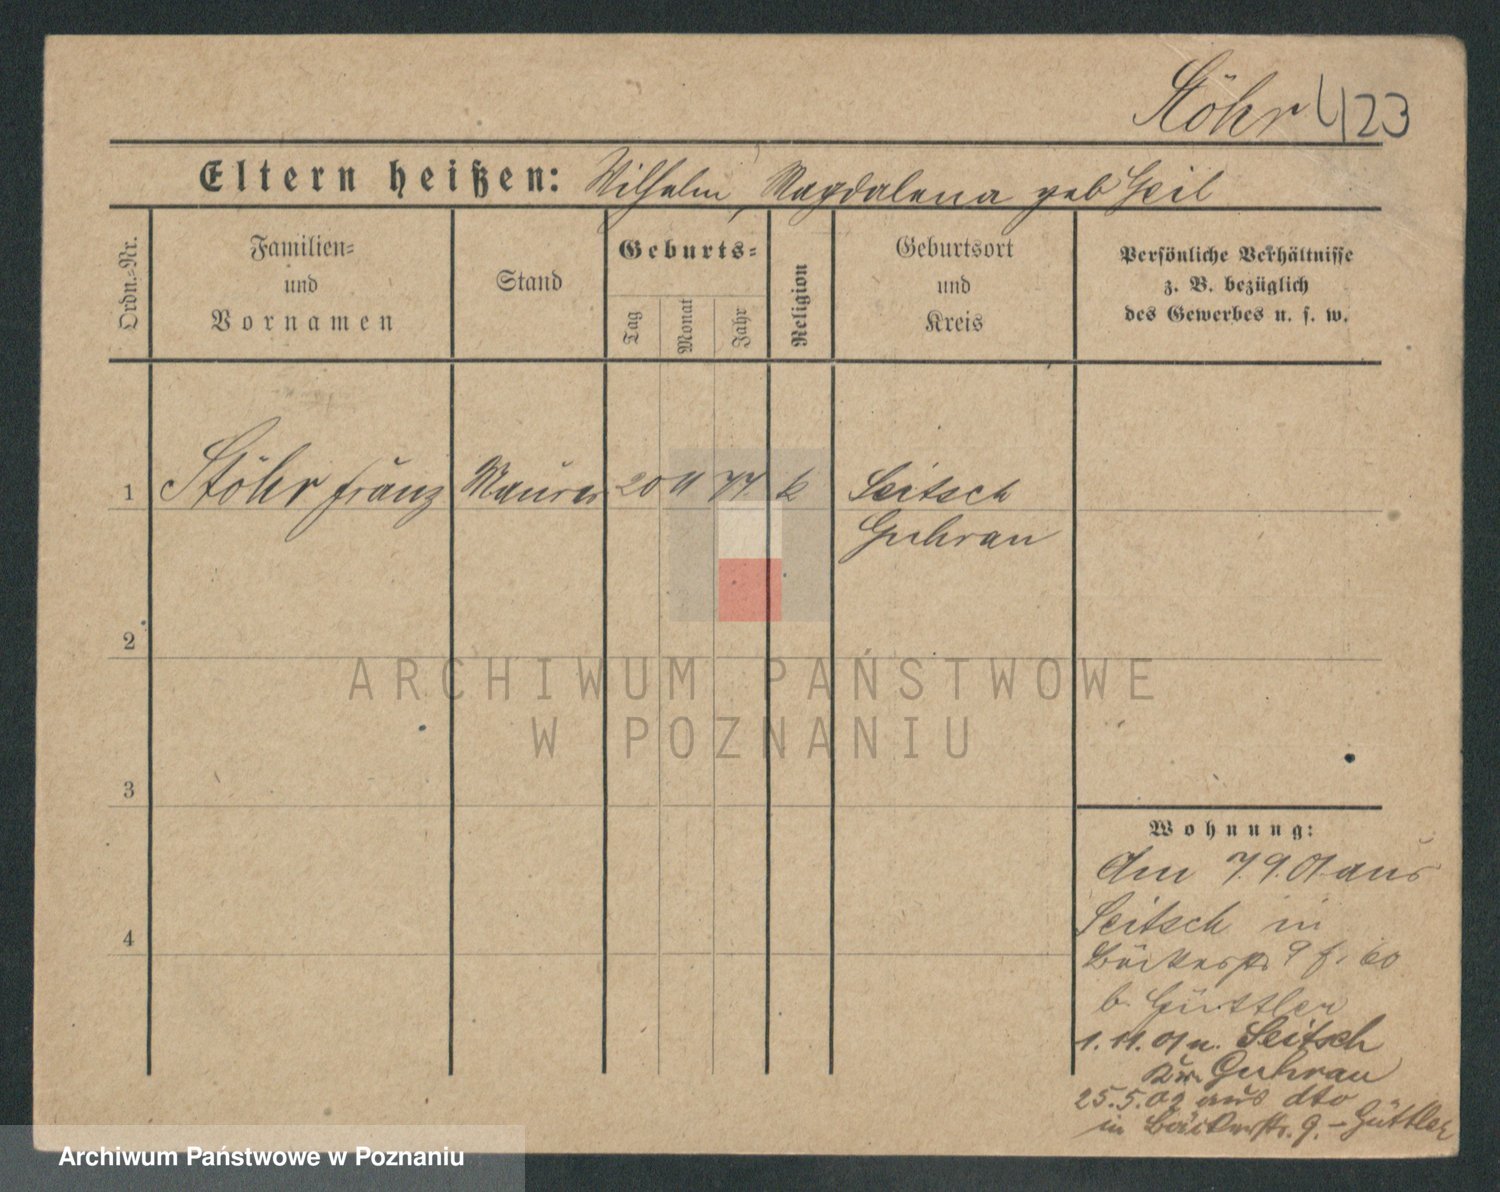 Stöhr 423
Eltern heißen: Wilhelm, Magdalena geb Geil
Ordn.-Nr.
Familien-
und
Vornamen
Stand
Geburts-
Tag
Monat
Jahr
Religion
Geburtsort
und
Kreis
Persönliche Verhältnisse
z. B. bezüglich
des Gewerbes u. s. w.
1 Stöhr Franz Maurer 20 11 77. k Seitsch
Guhrau
2
3
4
ARCHIWUM PAŃSTWOWE
W POZNANIU
Wohnung:
Am 7.9.01 aus
Seitsch in
Bäckerstr 9 f. 60
b. Güttler
1.11.01 n. Seitsch
Kr. Guhrau
25.5.02 aus dto
in Bäckerstr. 9. - Güttler
Archiwum Państwowe w Poznaniu